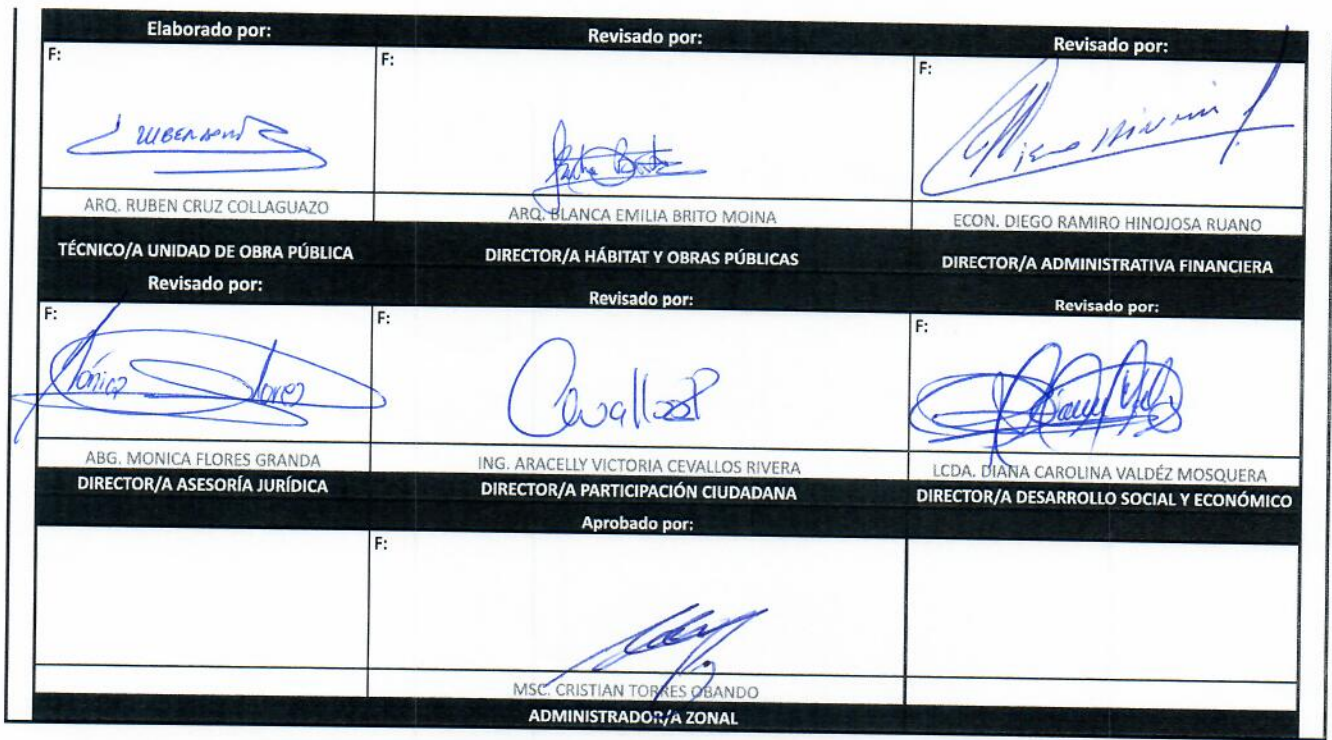 Elaborado por:
Revisado por:
Revisado por:
F:
F:
F:
ARQ. RUBEN CRUZ COLLAGUAZO
ARQ. BLANCA EMILIA BRITO MOINA
ECON. DIEGO RAMIRO HINOJOSA RUANO
TÉCNICO/A UNIDAD DE OBRA PÚBLICA
DIRECTOR/A HÁBITAT Y OBRAS PÚBLICAS
DIRECTOR/A ADMINISTRATIVA FINANCIERA
Revisado por:
Revisado por:
Revisado por:
F:
F:
F:
Mónica Flores
Cevallos
ABG. MONICA FLORES GRANDA
ING. ARACELLY VICTORIA CEVALLOS RIVERA
LCDA. DIANA CAROLINA VALDÉZ MOSQUERA
DIRECTOR/A ASESORÍA JURÍDICA
DIRECTOR/A PARTICIPACIÓN CIUDADANA
DIRECTOR/A DESARROLLO SOCIAL Y ECONÓMICO
Aprobado por:
F:
MSC. CRISTIAN TORRES OBANDO
ADMINISTRADOR/A ZONAL